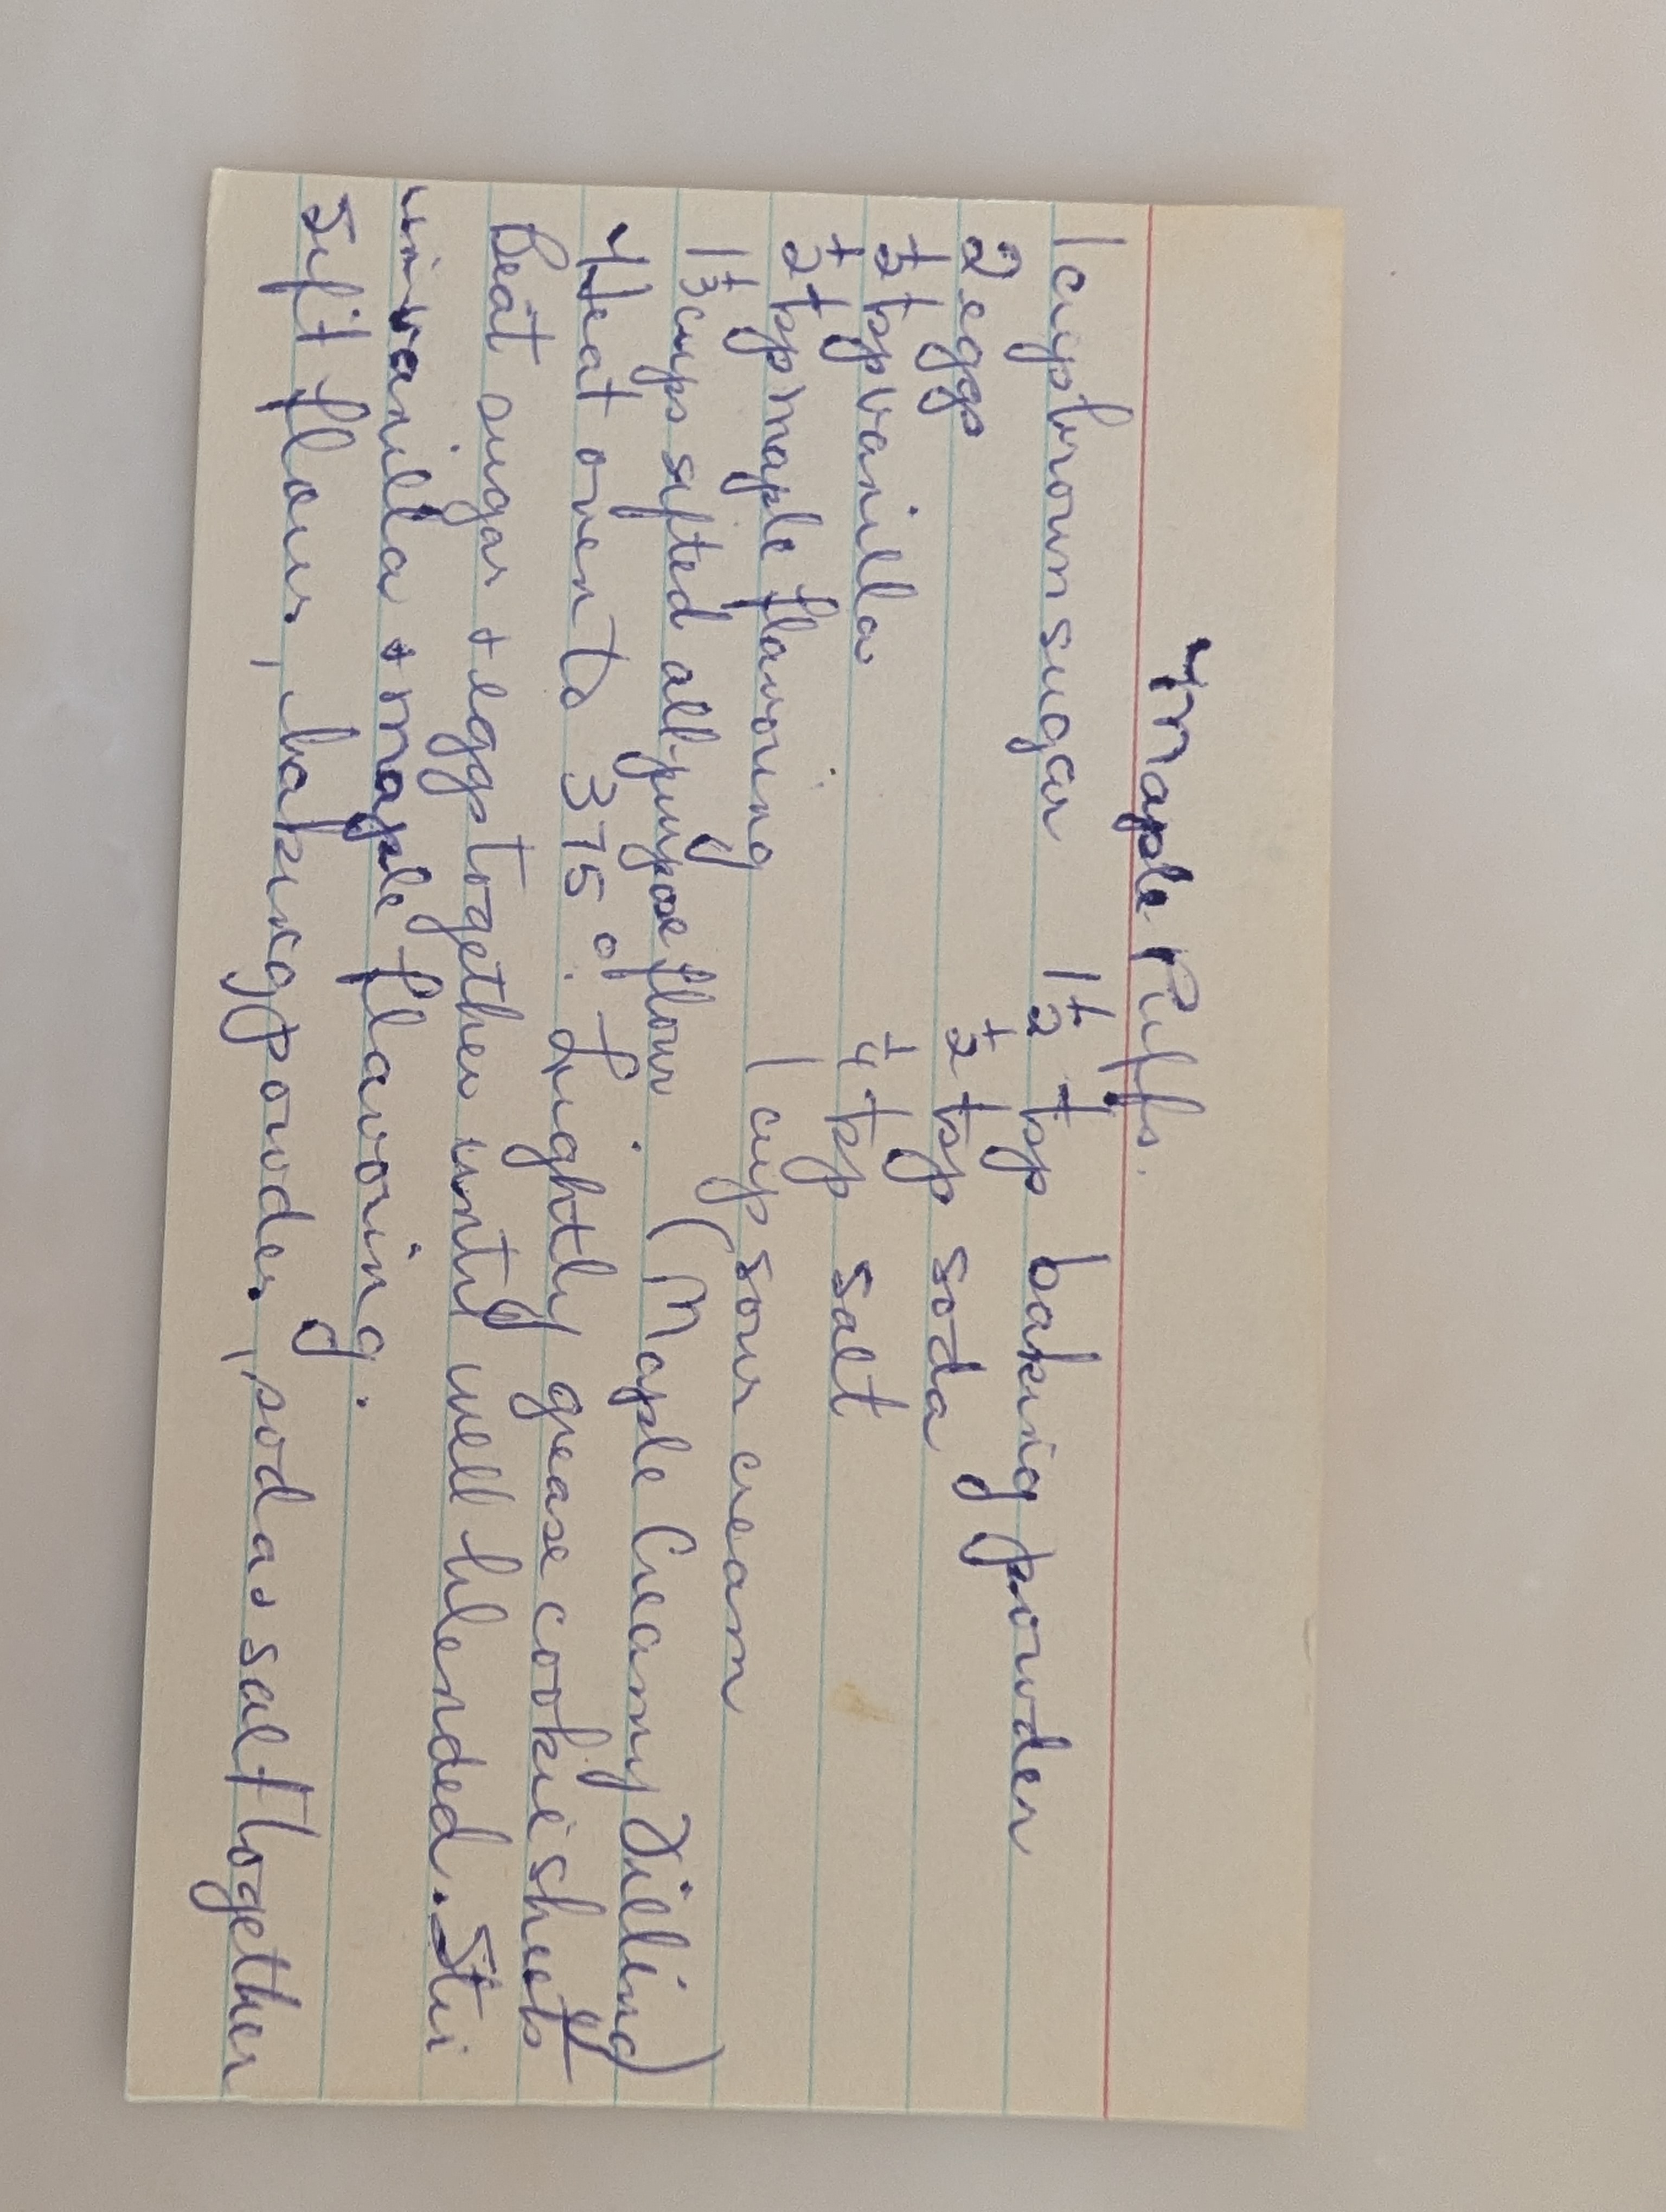 Maple Puffs.
1 cup brown sugar 1 1/2 tsp baking powder
2 eggs 1/2 tsp soda
1/2 tsp vanilla 1/4 tsp salt
1/2 tsp maple flavoring 1 cup sour cream
1 1/3 cups sifted all-purpose flour (Maple Creamy Filling)
Heat oven to 375° F. Lightly grease cookie sheets
Beat sugar + eggs together until well blended. Stir
in vanilla + maple flavoring.
Sift flour, baking powder, soda + salt together